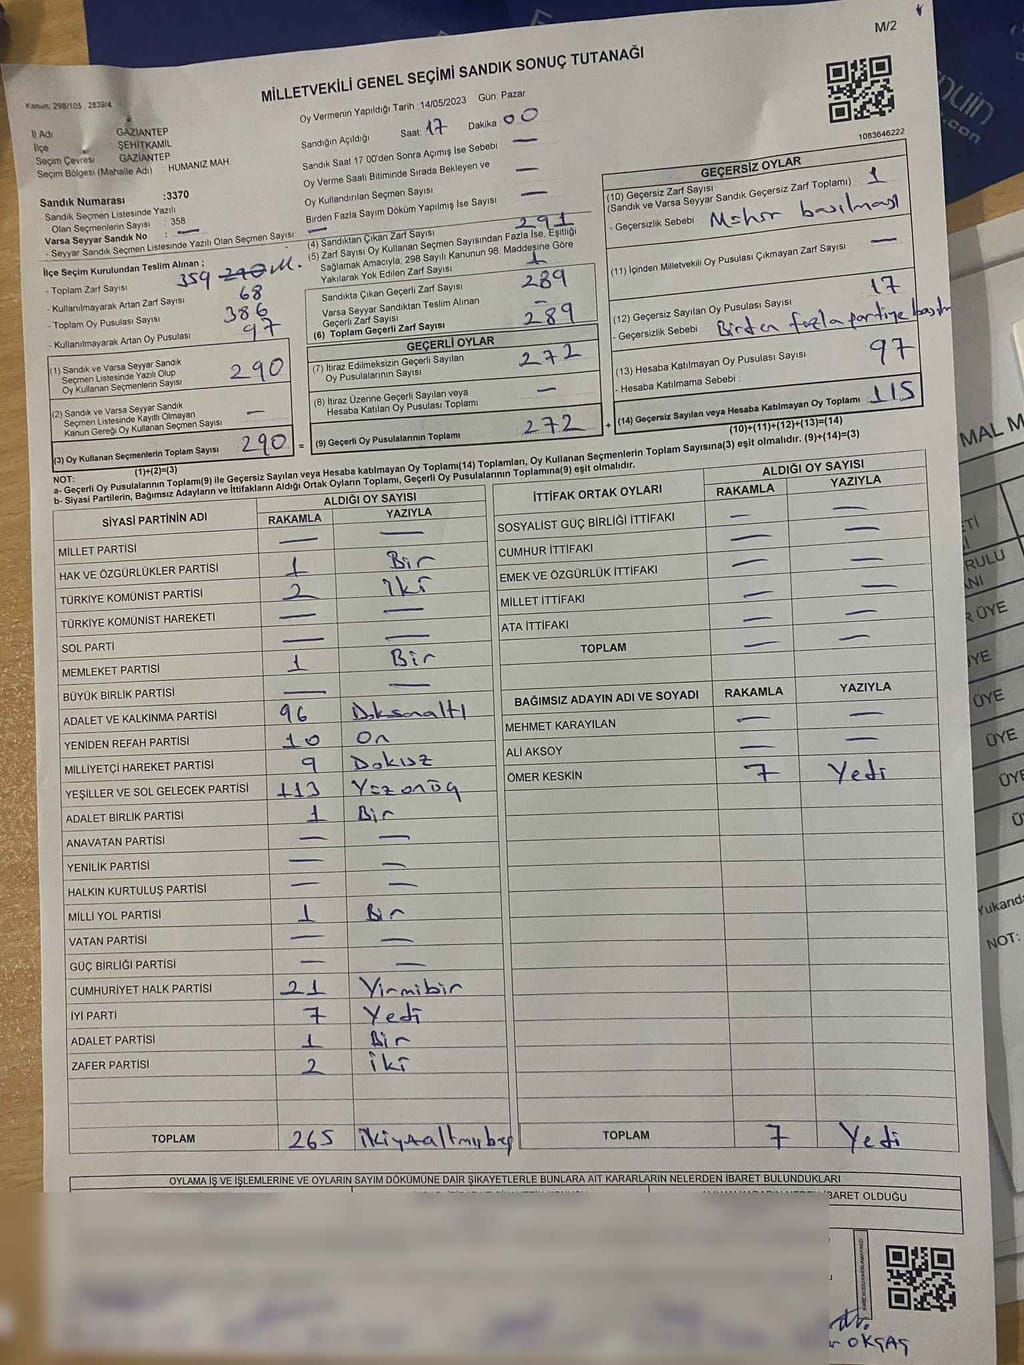 M/2
MİLLETVEKİLİ GENEL SEÇİMİ SANDIK SONUÇ TUTANAĞI
Kanun: 298/105 , 2839/4
Oy Vermenin Yapıldığı Tarih : 14/05/2023 Gün: Pazar
İl Adı GAZİANTEP
İlçe ŞEHİTKAMİL
Seçim Çevresi GAZİANTEP
Seçim Bölgesi (Mahalle Adı) : HUMANIZ MAH
Sandığın Açıldığı Saat: 17 Dakika 00
Sandık Saat 17 00'den Sonra Açımış İse Sebebi —
Oy Verme Saati Bitiminde Sırada Bekleyen ve
Oy Kullandırılan Seçmen Sayısı —
Birden Fazla Sayım Döküm Yapılmış İse Sayısı —
1083646222
Sandık Numarası :3370
Sandık Seçmen Listesinde Yazılı
Olan Seçmenlerin Sayısı : 358
Varsa Seyyar Sandık No : —
- Seyyar Sandık Seçmen Listesinde Yazılı Olan Seçmen Sayısı —
İlçe Seçim Kurulundan Teslim Alınan ;
- Toplam Zarf Sayısı 359
- Kullanılmayarak Artan Zarf Sayısı 68
- Toplam Oy Pusulası Sayısı 386
- Kullanılmayarak Artan Oy Pusulası 97
(1) Sandık ve Varsa Seyyar Sandık
Seçmen Listesinde Yazılı Olup
Oy Kullanan Seçmenlerin Sayısı 290
(2) Sandık ve Varsa Seyyar Sandık
Seçmen Listesinde Kayıtlı Olmayan
Kanun Gereği Oy Kullanan Seçmen Sayısı —
(3) Oy Kullanan Seçmenlerin Toplam Sayısı 290
(1)+(2)=(3)
(4) Sandıktan Çıkan Zarf Sayısı 291
(5) Zarf Sayısı Oy Kullanan Seçmen Sayısından Fazla İse, Eşitliği
Sağlamak Amacıyla; 298 Sayılı Kanunun 98. Maddesine Göre
Yakılarak Yok Edilen Zarf Sayısı 1
Sandıkta Çıkan Geçerli Zarf Sayısı 289
Varsa Seyyar Sandıktan Teslim Alınan
Geçerli Zarf Sayısı —
(6) Toplam Geçerli Zarf Sayısı 289
GEÇERLİ OYLAR
(7) İtiraz Edilmeksizin Geçerli Sayılan
Oy Pusulalarının Sayısı 272
(8) İtiraz Üzerine Geçerli Sayılan veya
Hesaba Katılan Oy Pusulası Toplamı —
= (9) Geçerli Oy Pusulalarının Toplamı 272
GEÇERSİZ OYLAR
(10) Geçersiz Zarf Sayısı
(Sandık ve Varsa Seyyar Sandık Geçersiz Zarf Toplamı) 1
- Geçersizlik Sebebi Mühür basılması
(11) İçinden Milletvekili Oy Pusulası Çıkmayan Zarf Sayısı —
(12) Geçersiz Sayılan Oy Pusulası Sayısı 17
- Geçersizlik Sebebi Birden fazla partiye
(13) Hesaba Katılmayan Oy Pusulası Sayısı 97
- Hesaba Katılmama Sebebi :
+ (14) Geçersiz Sayılan veya Hesaba Katılmayan Oy Toplamı 115
(10)+(11)+(12)+(13)=(14)
NOT:
a- Geçerli Oy Pusulalarının Toplamı(9) ile Geçersiz Sayılan veya Hesaba katılmayan Oy Toplamı(14) Toplamları, Oy Kullanan Seçmenlerin Toplam Sayısına(3) eşit olmalıdır. (9)+(14)=(3)
b- Siyasi Partilerin, Bağımsız Adayların ve İttifakların Aldığı Ortak Oyların Toplamı, Geçerli Oy Pusulalarının Toplamına(9) eşit olmalıdır.
SİYASİ PARTİNİN ADI ALDIĞI OY SAYISI
RAKAMLA YAZIYLA
MİLLET PARTİSİ — —
HAK VE ÖZGÜRLÜKLER PARTİSİ 1 Bir
TÜRKİYE KOMÜNİST PARTİSİ 2 İki
TÜRKİYE KOMÜNİST HAREKETİ — —
SOL PARTİ — —
MEMLEKET PARTİSİ 1 Bir
BÜYÜK BİRLİK PARTİSİ — —
ADALET VE KALKINMA PARTİSİ 96 Doksanaltı
YENİDEN REFAH PARTİSİ 10 On
MİLLİYETÇİ HAREKET PARTİSİ 9 Dokuz
YEŞİLLER VE SOL GELECEK PARTİSİ 113 Yüzonüç
ADALET BİRLİK PARTİSİ 1 Bir
ANAVATAN PARTİSİ — —
YENİLİK PARTİSİ — —
HALKIN KURTULUŞ PARTİSİ — —
MİLLİ YOL PARTİSİ 1 Bir
VATAN PARTİSİ — —
GÜÇ BİRLİĞİ PARTİSİ — —
CUMHURİYET HALK PARTİSİ 21 Yirmibir
İYİ PARTİ 7 Yedi
ADALET PARTİSİ 1 Bir
ZAFER PARTİSİ 2 İki
TOPLAM 265 ikiyüzaltmışbeş
İTTİFAK ORTAK OYLARI ALDIĞI OY SAYISI
RAKAMLA YAZIYLA
SOSYALİST GÜÇ BİRLİĞİ İTTİFAKI — —
CUMHUR İTTİFAKI — —
EMEK VE ÖZGÜRLÜK İTTİFAKI — —
MİLLET İTTİFAKI — —
ATA İTTİFAKI — —
TOPLAM — —
BAĞIMSIZ ADAYIN ADI VE SOYADI RAKAMLA YAZIYLA
MEHMET KARAYILAN — —
ALİ AKSOY — —
ÖMER KESKİN 7 Yedi
TOPLAM 7 Yedi
OYLAMA İŞ VE İŞLEMLERİNE VE OYLARIN SAYIM DÖKÜMÜNE DAİR ŞİKAYETLERLE BUNLARA AİT KARARLARIN NELERDEN İBARET BULUNDUKLARI
İBARET OLDUĞU
OKÇAŞ
MAL M
RULU
ÜYE
ÜYE
ÜYE
Yukarıda
NOT: